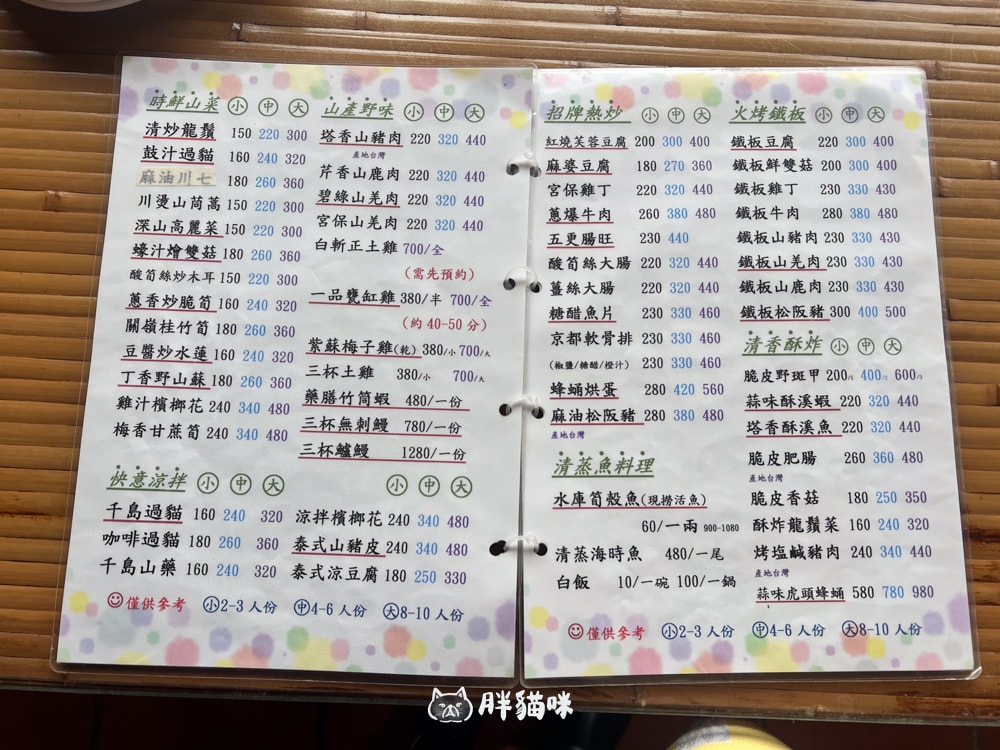 時鮮山菜 小 中 大
清炒龍鬚 150 220 300
鼓汁過貓 160 240 320
麻油川七 180 260 360
川燙山茼萵 150 220 300
深山高麗菜 150 220 300
蠔汁燴雙菇 180 260 360
酸筍絲炒木耳 150 220 300
蔥香炒脆筍 160 240 320
關嶺桂竹筍 180 260 360
豆醬炒水蓮 160 240 320
丁香野山蘇 180 260 360
雞汁檳榔花 240 340 480
梅香甘蔗筍 240 340 480
山產野味 小 中 大
塔香山豬肉 220 320 440
產地台灣
芹香山鹿肉 220 320 440
碧綠山羌肉 220 320 440
宮保山羌肉 220 320 440
白斬正土雞 700/全
(需先預約)
一品甕缸雞 380/半 700/全
(約40-50分)
紫蘇梅子雞(乾) 380/小 700/大
三杯土雞 380/小 700/大
藥膳竹筒蝦 480/一份
三杯無刺鰻 780/一份
三杯鱸鰻 1280/一份
快意涼拌 小 中 大
千島過貓 160 240 320
咖啡過貓 180 260 360
千島山藥 160 240 320
小 中 大
涼拌檳榔花 240 340 480
泰式山豬皮 240 340 480
泰式涼豆腐 180 250 330
僅供參考 小2-3人份 中4-6人份 大8-10人份
招牌熱炒 小 中 大
紅燒芙蓉豆腐 200 300 400
麻婆豆腐 180 270 360
宮保雞丁 220 320 440
蔥爆牛肉 260 380 480
五更腸旺 230 440
酸筍絲大腸 220 320 440
薑絲大腸 220 320 440
糖醋魚片 230 330 460
京都軟骨排 230 330 460
(椒鹽/糖醋/橙汁) 230 330 460
蜂蛹烘蛋 280 420 560
麻油松阪豬 280 380 480
產地台灣
清蒸魚料理
水庫筍殼魚(現撈活魚)
60/一兩 900-1080
清蒸海時魚 480/一尾
白飯 10/一碗 100/一鍋
火烤鐵板 小 中 大
鐵板豆腐 220 300 400
鐵板鮮雙菇 200 300 400
鐵板雞丁 230 330 430
鐵板牛肉 280 380 480
鐵板山豬肉 230 330 430
鐵板山羌肉 230 330 430
鐵板山鹿肉 230 330 430
鐵板松阪豬 300 400 500
清香酥炸 小 中 大
脆皮野斑甲 200/1 400/2 600/3
蒜味酥溪蝦 220 320 440
塔香酥溪魚 220 320 440
脆皮肥腸 260 360 480
產地台灣
脆皮香菇 180 250 350
酥炸龍鬚菜 160 240 320
烤塩鹹豬肉 240 340 440
產地台灣
蒜味虎頭蜂蛹 580 780 980
僅供參考 小2-3人份 中4-6人份 大8-10人份
胖貓咪